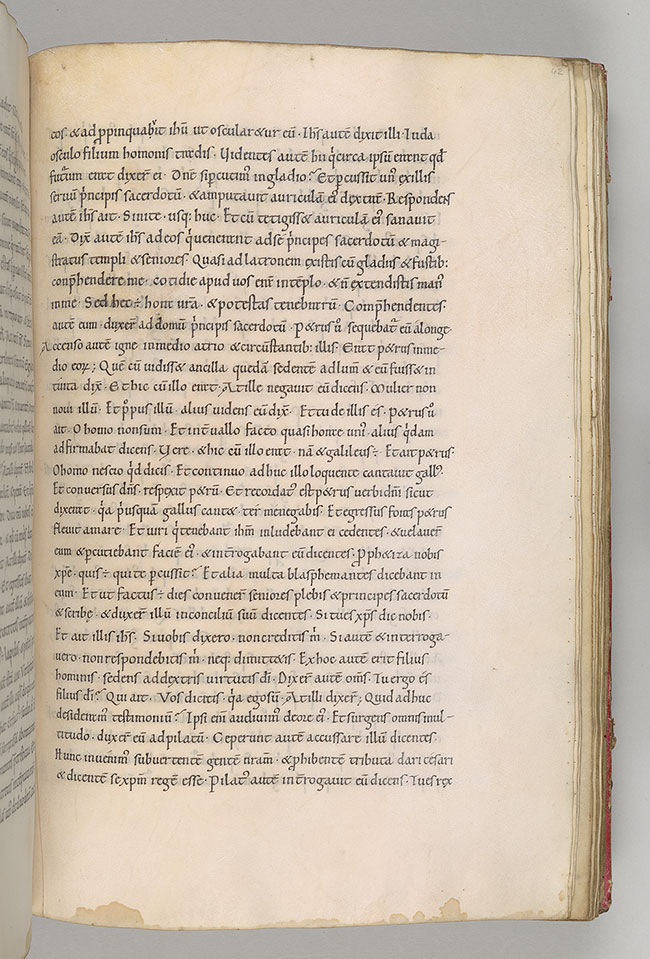 eos · & adp̱pinquabit ih̄m ut oscular&ur eū · Ih̄s autē dixit illi · Iuda
osculo filium hominis tradis · Uidentes autē hii q̇circa ipsū erant qd̄
futurum erat dixer̄ ei · Dn̄e si p̱cutim᷒ in gladio? Et p̱cussit un᷒ exillis
seruū ṗncipis sacerdotū · & amputauit auriculā ei᷒ dextrā · Respondens
autē ih̄s ait · Sinite · usq; huc · Et cū tetigiss& auriculā ei᷒ sanauit
eā · Dix̄ autē ih̄s ad eos q̇uenerant adsē ṗncipes sacerdotū & magi-
stratus templi & seniores · Quasi ad latronem existis cū gladiis & fustib;
conp̱hendere me · cotidie apud uos erā intēplo · & n̄ extendistis man᷒
inme · Sed hec ÷ hora ur̄a · & potestas tenebrarū · Comp̱hendentes
autē eum · duxer̄ ad domū ṗncipis sacerdotū · P&rus ū sequebat᷒ eū alonge
Accenso autē igne in medio atrio & circūstantib; illis · Erat p&rus inme-
dio eoꝝ; Quē cū uidiss& ancilla quedā sedentē ad lum̄ & eū fuiss& in
tuita dix̄ · Et hic cū illo erat · At ille negauit eū dicens · Mulier non
noui illū · Et p᷒ pusillū · alius uidens eū dix̄ · Et tu de illis es · P&rus ū
ait · O homo non sum · Et int̄uallo facto quasi hore uni᷒ · alius q̇dam
adfirmabat dicens · Vere · & hic cū illo erat · nā & galileus ÷ Et ait p&rus ·
O homo nescio q̇d dicis · Et continuo adhuc illo loquente cantauit gall᷒ ·
Et conuersus dn̄s · respexit p&rū · Et recordat᷒ est p&rus uerbi dn̄i sicut
dixerat · q̇a ṗusquā gallus cant& · ter me negabis · Et egressus foras p&rus
fleuit amare · Et uiri q̇ tenebant ih̄m inludebant ei cedentes · & uelauer̄
eum & p̱cutiebant faciē ei᷒ · & int̄rogabant eū dicentes · P̱ph&iza nobis
xp̄e · quis ÷ qui te p̱cussit? Et alia multa blasphemantes dicebant in
eum · Et ut factus ÷ dies conuener̄ seniores plebis & principes sacerdotū
& scribę · & duxer̄ illū inconciliū suū dicentes · Si tu es xp̄s dic nobis ·
Et ait illis ih̄s · Si uobis dixero · non creditis m̄ · Si autē & interroga-
uero · non respondebitis m̄ · neq; dimitt&is · Ex hoc autē erit filius
hominis · sedens ad dextris uirtutis dī · Dixer̄ autē om̄s · Tu ergo es
filius dī? Qui ait · Vos dicitis · q̇a ego sū · At illi dixer̄; Quid adhuc
desideram᷒ testimoniū? Ipsi enī audiuim᷒ de ore ei᷒ · Et surgens omnis mul-
titudo · duxer̄ eū ad pilatū · Ceperunt autē accussare illū dicentes ·
Hunc inuenim᷒ subuertentē gentē nr̄am · & p̱hibentē tributa dari cesari
& dicentē se xp̄m regē esse · Pilat᷒ autē int̄rogauit eū dicens · Tu es rex